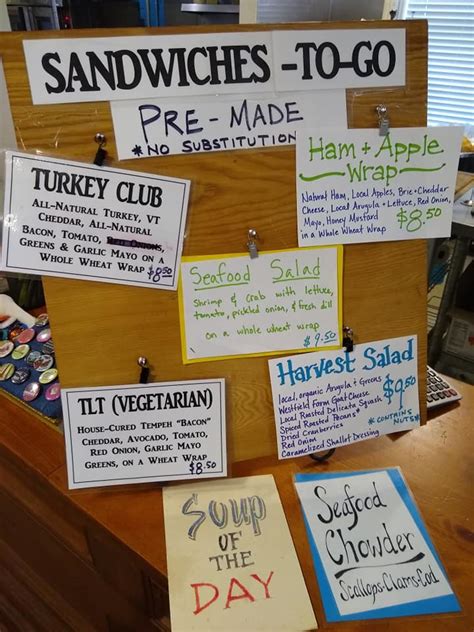 SANDWICHES -TO-GO
PRE-MADE
*NO SUBSTITUTION
TURKEY CLUB
ALL-NATURAL TURKEY, VT
CHEDDAR, ALL-NATURAL
BACON, TOMATO,
GREENS & GARLIC MAYO ON A
WHOLE WHEAT WRAP $8.50
Ham + Apple
Wrap
Natural Ham, Local Apples, Brie + Cheddar
Cheese, Local Arugula + Lettuce, Red Onion,
Mayo, Honey Mustard
in a Whole Wheat Wrap $8.50
Seafood Salad
Shrimp & Crab with lettuce,
tomato, pickled onion, & fresh dill
on a whole wheat wrap
$9.50
Harvest Salad
local, organic Arugula + Greens
Westfield Farm Goat Cheese
Local Roasted Delicata Squash
Spiced Roasted Pecans*
Dried Cranberries
Red Onion
Caramelized Shallot Dressing
$9.50
*CONTAINS
NUTS*
TLT (VEGETARIAN)
HOUSE-CURED TEMPEH "BACON"
CHEDDAR, AVOCADO, TOMATO,
RED ONION, GARLIC MAYO
GREENS, ON A WHEAT WRAP
$8.50
Soup
OF THE
DAY
Seafood
Chowder
Scallops-Clams-Cod